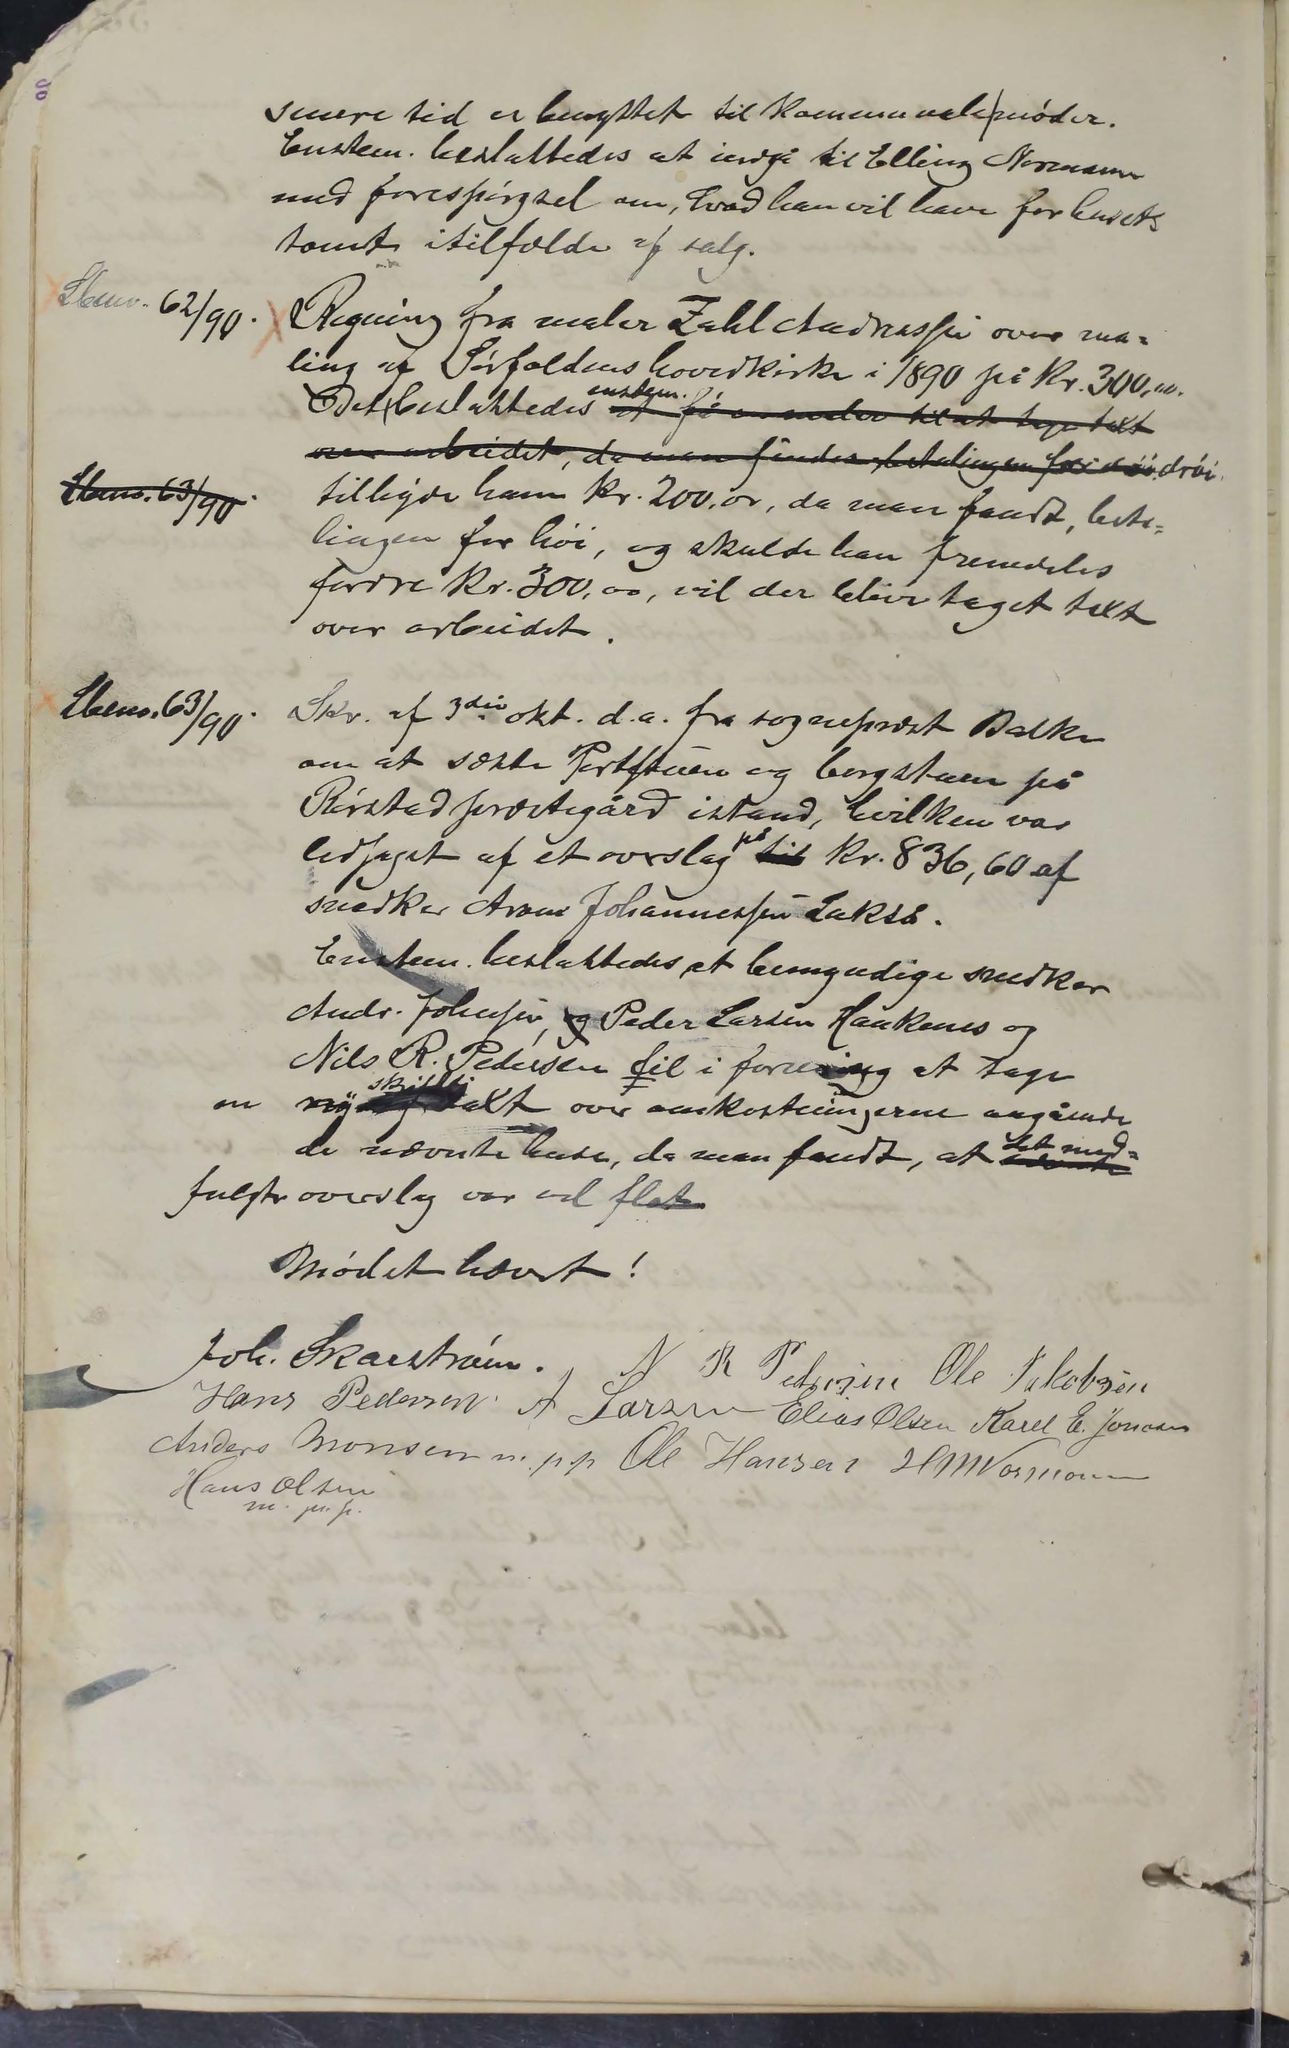 senere tid er benyttet til kommunale møder.
Enstem. besluttedes at indgå til Elling Normann
med forespørgsel om, hvad han vil have for husets
tomt i tilfælde af salg.
62/90. Regning fra maler Zahl Andreassen over ma-
ling af Sørfoldens hovedkirke i 1890 på kr. 300,00.
Det besluttedes enstem. at få en maler til at tage taxt
over arbeidet, da man finder betalingen for drøi
63/90. tilbyde ham kr. 200.00, da man fandt, beta-
lingen for høi, og skulde han fremdeles
fordre kr. 300,00, vil der blive taget taxt
over arbeidet.
63/90. Skr. af 3die okt. d.a. fra sogneprest Balke
om at sætte Portstuen og borgstuen på
Rørstad prestegård istand, hvilken var
ledsaget af et overslag på til kr. 836,60 af
snedker Arone Johannessen Lakså.
Enstem. besluttedes at bemyndige snedker
Andr. Johnsen, og Peder Larsen Haukenes og
Nils R. Pedersen til i forening at tage
en ny skriftl. taxt over omkostningerne angående
de nævnte huse, da man fandt, at det med-
fulgte overslag var vel flot
Mødet hævet!
Joh. Skarstrøm. N R Pedersen Ole Jakobsen
Hans Pedersen A Larsen Elias Olsen Karel E. Jonasen
Anders Monsen m.p.p Ole Hansen H M Normann
Hans Olsen
m. p. p.